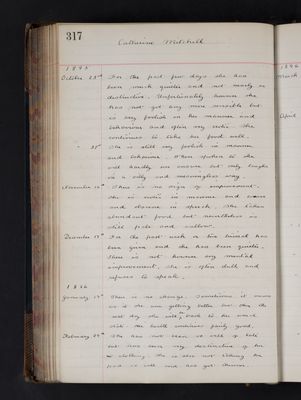 317
Catharine Mitchell
1895
October 23rd For the past few days she has
been much quieter and not nearly so
destructive. Unfortunately however she
has not got any more sensible but
is very foolish in her manner and
behaviour and often very noisy. She
continues to take her food well.
" 31st She is still very foolish in manner
and behaviour. When spoken to she
will hardly ever answer but only laughs
in a silly and meaningless way.
November There is no sign of improvement.
She is noisy in manner and
and obscene in speech. She takes
abundant food but nevertheless is
still pale and sallow.
December For the past week a
been given and she has been quieter.
There is not however any mental
improvement. She is often dull and
refuses to speak.
1896
January There is no change. Sometimes it seems
as if she were getting better but then the
next day she will be back to the
state. Her health continues fairly good.
February She has not been so well of late
but has been very destructive of her
clothing. She is also not taking her
food so well and has got thinner.
1896
March
April